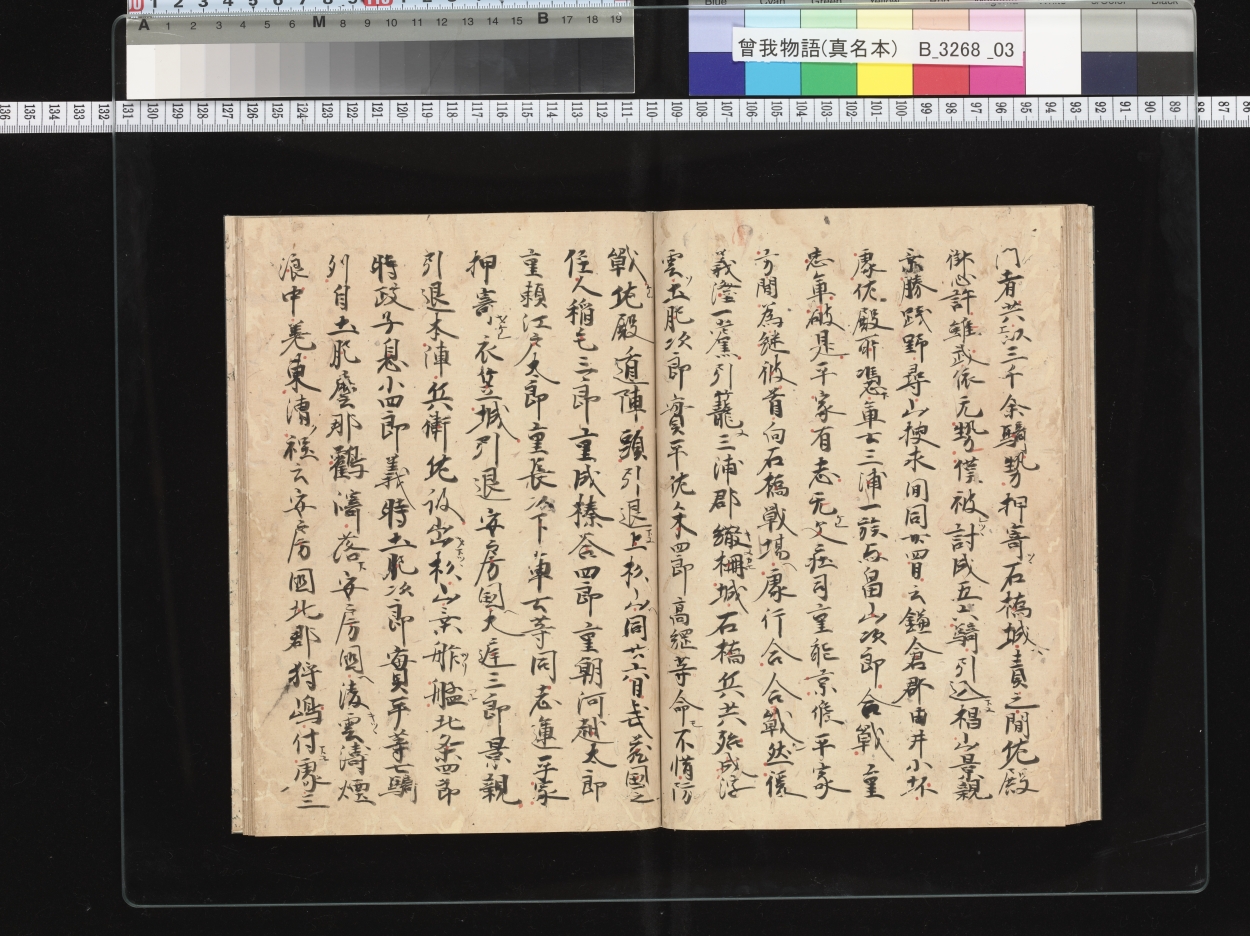 曾我物語(真名本) B_3268_03
門者共以三千余騎勢押寄石橋城責之間佐殿
御心許雖武依元勢僅被討成五六騎引込椙山景親
景勝践野尋山捜求間同廿四日云鎌倉郡由井小坏
康佐殿所憑軍士三浦一族与畠山次郎合戦重
忠軍破是平家有志元父庄司重能京候平家
方間為継彼首向石橋戦場康行合合戦然後
義澄一党引籠三浦郡城石橋兵共殆成浮
雲土肥次郎実平佐々木四郎高綱等命不惜防
戦佐殿遁陣頭引退上杉山同廿六日武蔵国之
住人稲毛三郎重成榛谷四郎重朝河越太郎
重頼江戸太郎重長以下軍士等同志運平家
押寄衣笠城引退安房国大庭三郎景親
引退本陣兵衛佐被出杉山北条四郎
時政子息小四郎義時土肥次郎実平等七騎
列自土肥鶴落安房国凌雲濤煙
浪中東漕云安房国北郡狩嶋付康三